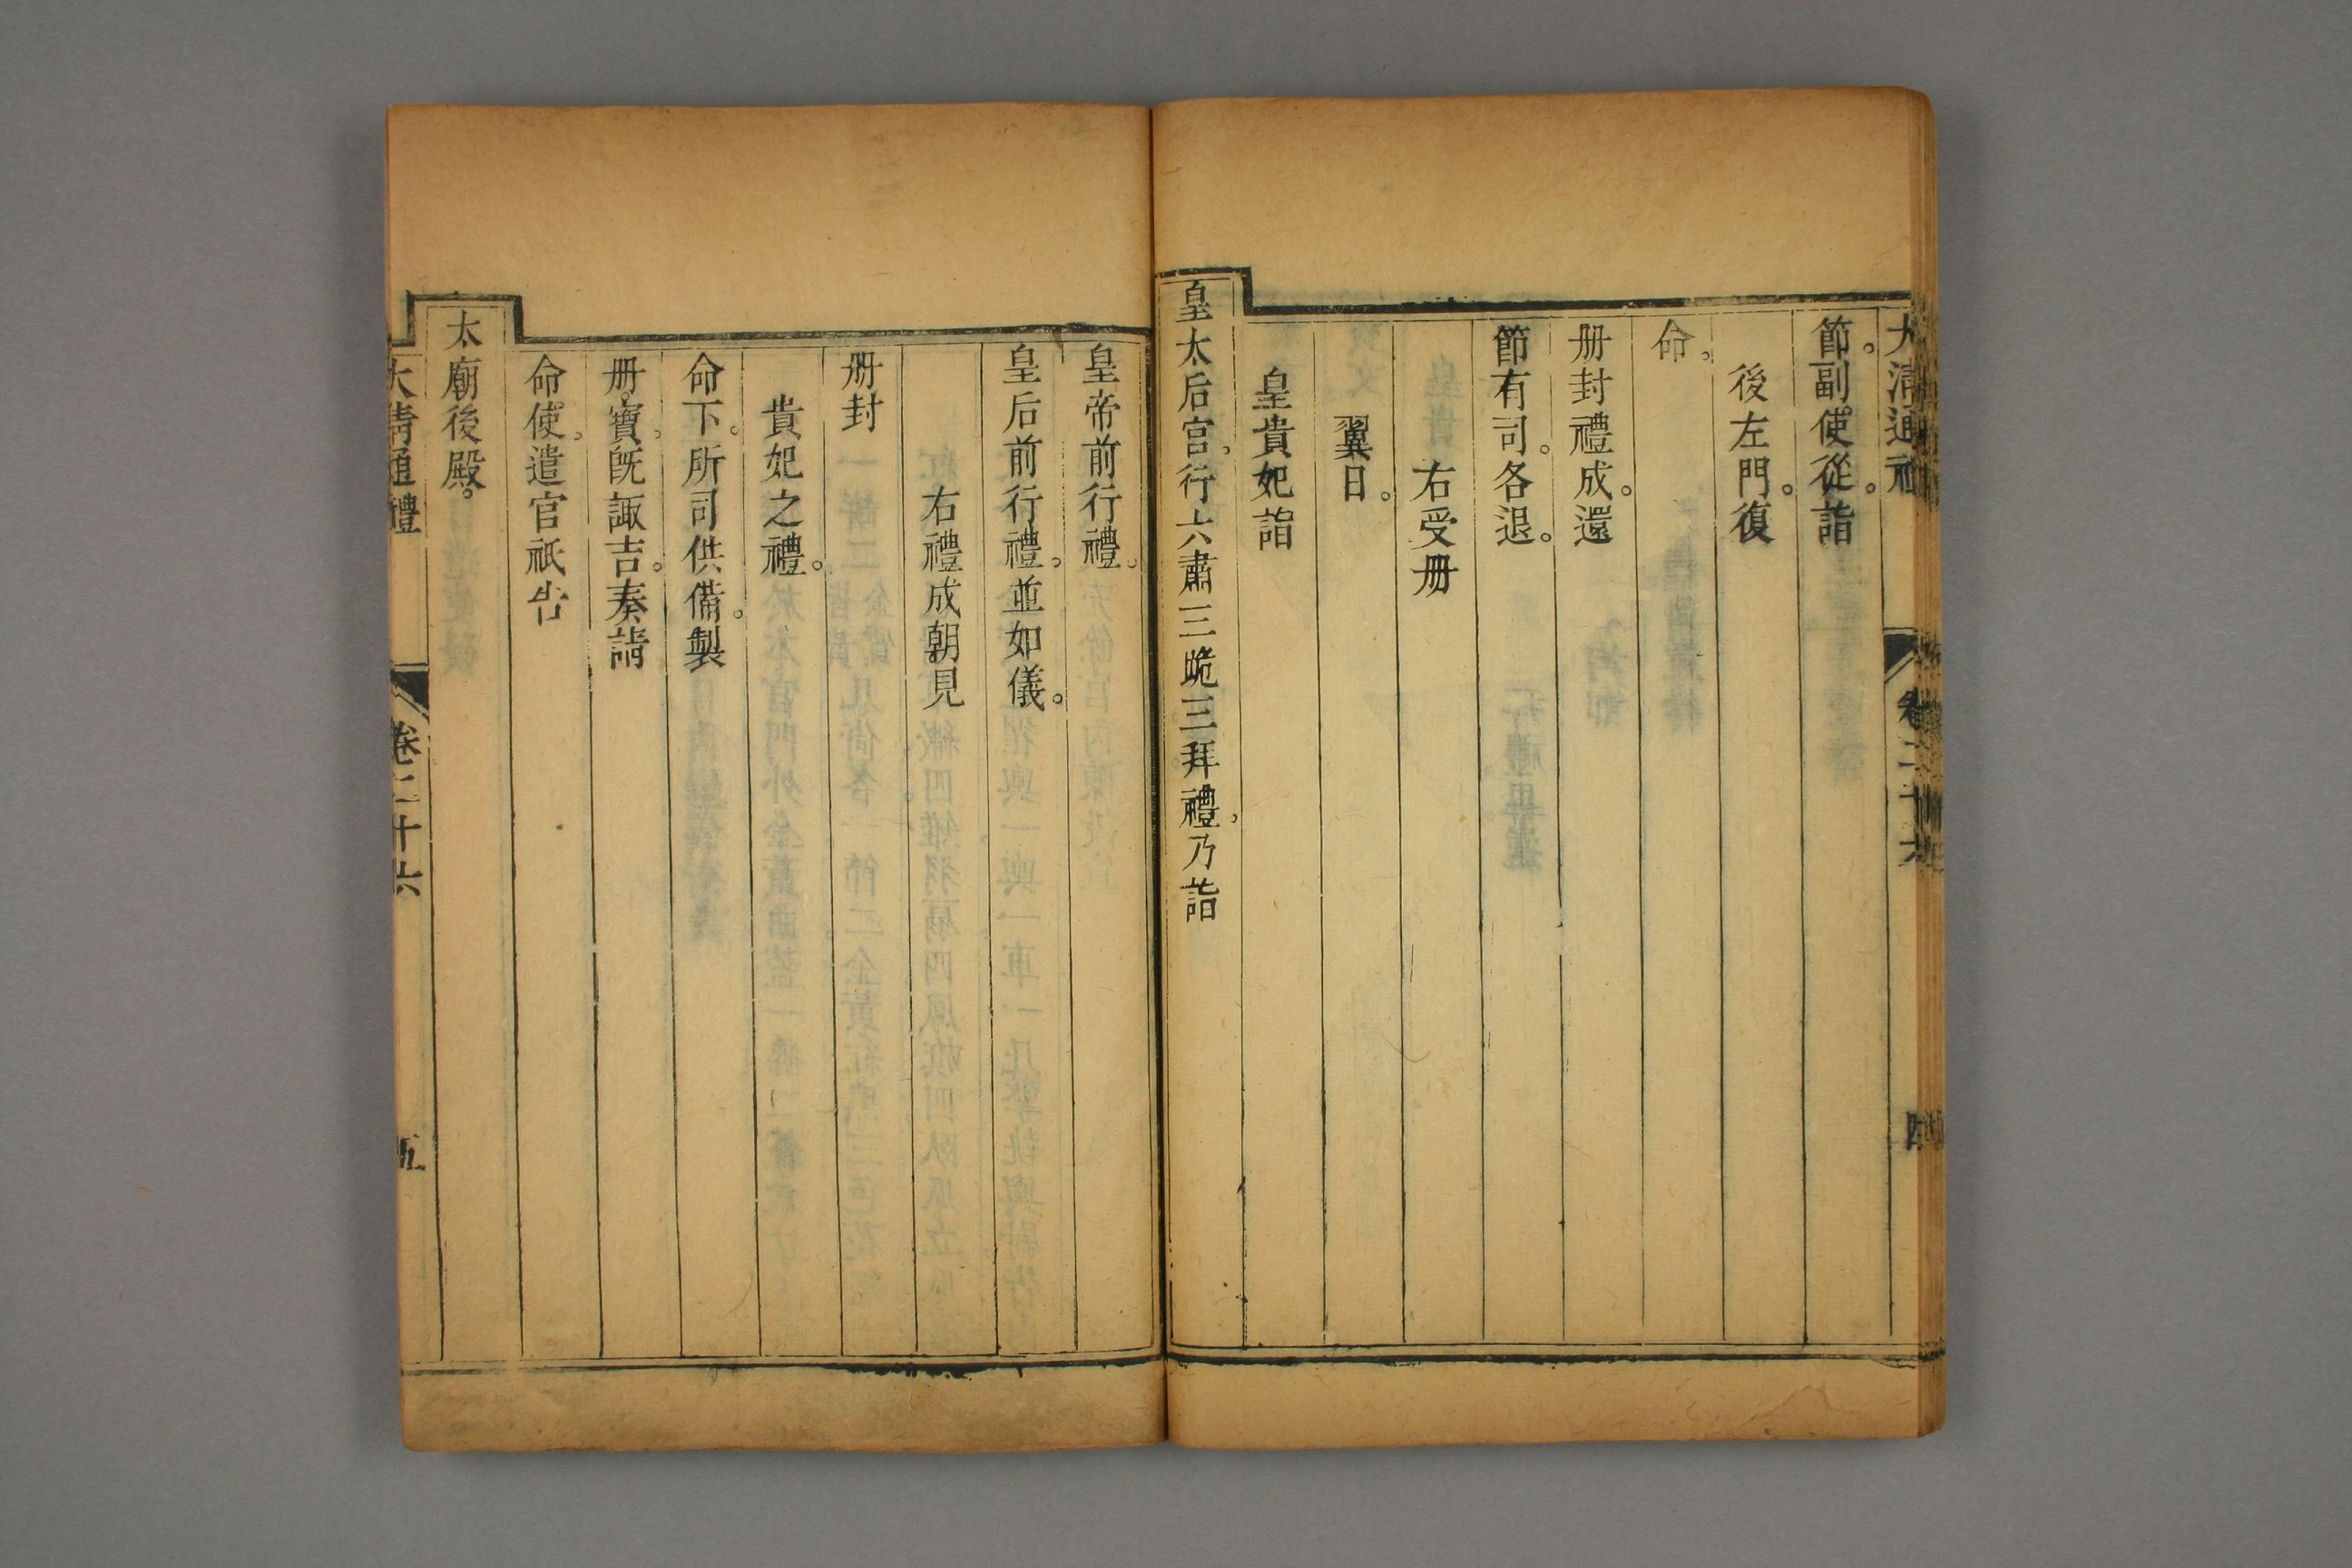 大清通禮 卷二十六 四
節。副使從。詣
後左門。復
命。
册封禮成。還
節。有司。各退。
右受册
翼日。
皇貴妃詣
皇太后宫。行六肅三跪三拜禮。乃詣
皇帝前行禮。
皇后前行禮。並如儀。
右禮成朝見
册封
貴妃之禮。
命下。所司供備。製
册。寶。旣諏吉。奏請
命使。遣官祇告
太廟後殿。
大清通禮 卷二十六 五